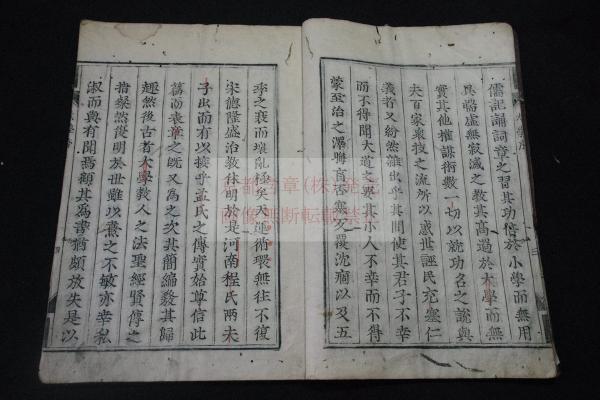 儒記誦詞章之習其功倍於小學而無用
異端虛無寂滅之教其高過於大學而無
實其他權謀術數一切以就功名之說與
夫百家衆技之流所以惑世誣民充塞仁
義者又紛然雜出乎其間使其君子不幸
而不得聞大道之要其小人不幸而不得
蒙至治之澤晦盲否塞反覆沈痼以及五
季之衰而壞亂極矣天運循環無往不復
宋德隆盛治教休明於是河南程氏兩夫
子出而有以接乎孟氏之傳實始尊信此
篇而表章之既又為之次其簡編發其歸
趣然後古者大學教人之法聖經賢傳之
指粲然復明於世雖以熹之不敏亦幸私
淑而與有聞焉顧其為書猶頗放失是以
画像無断転載禁止